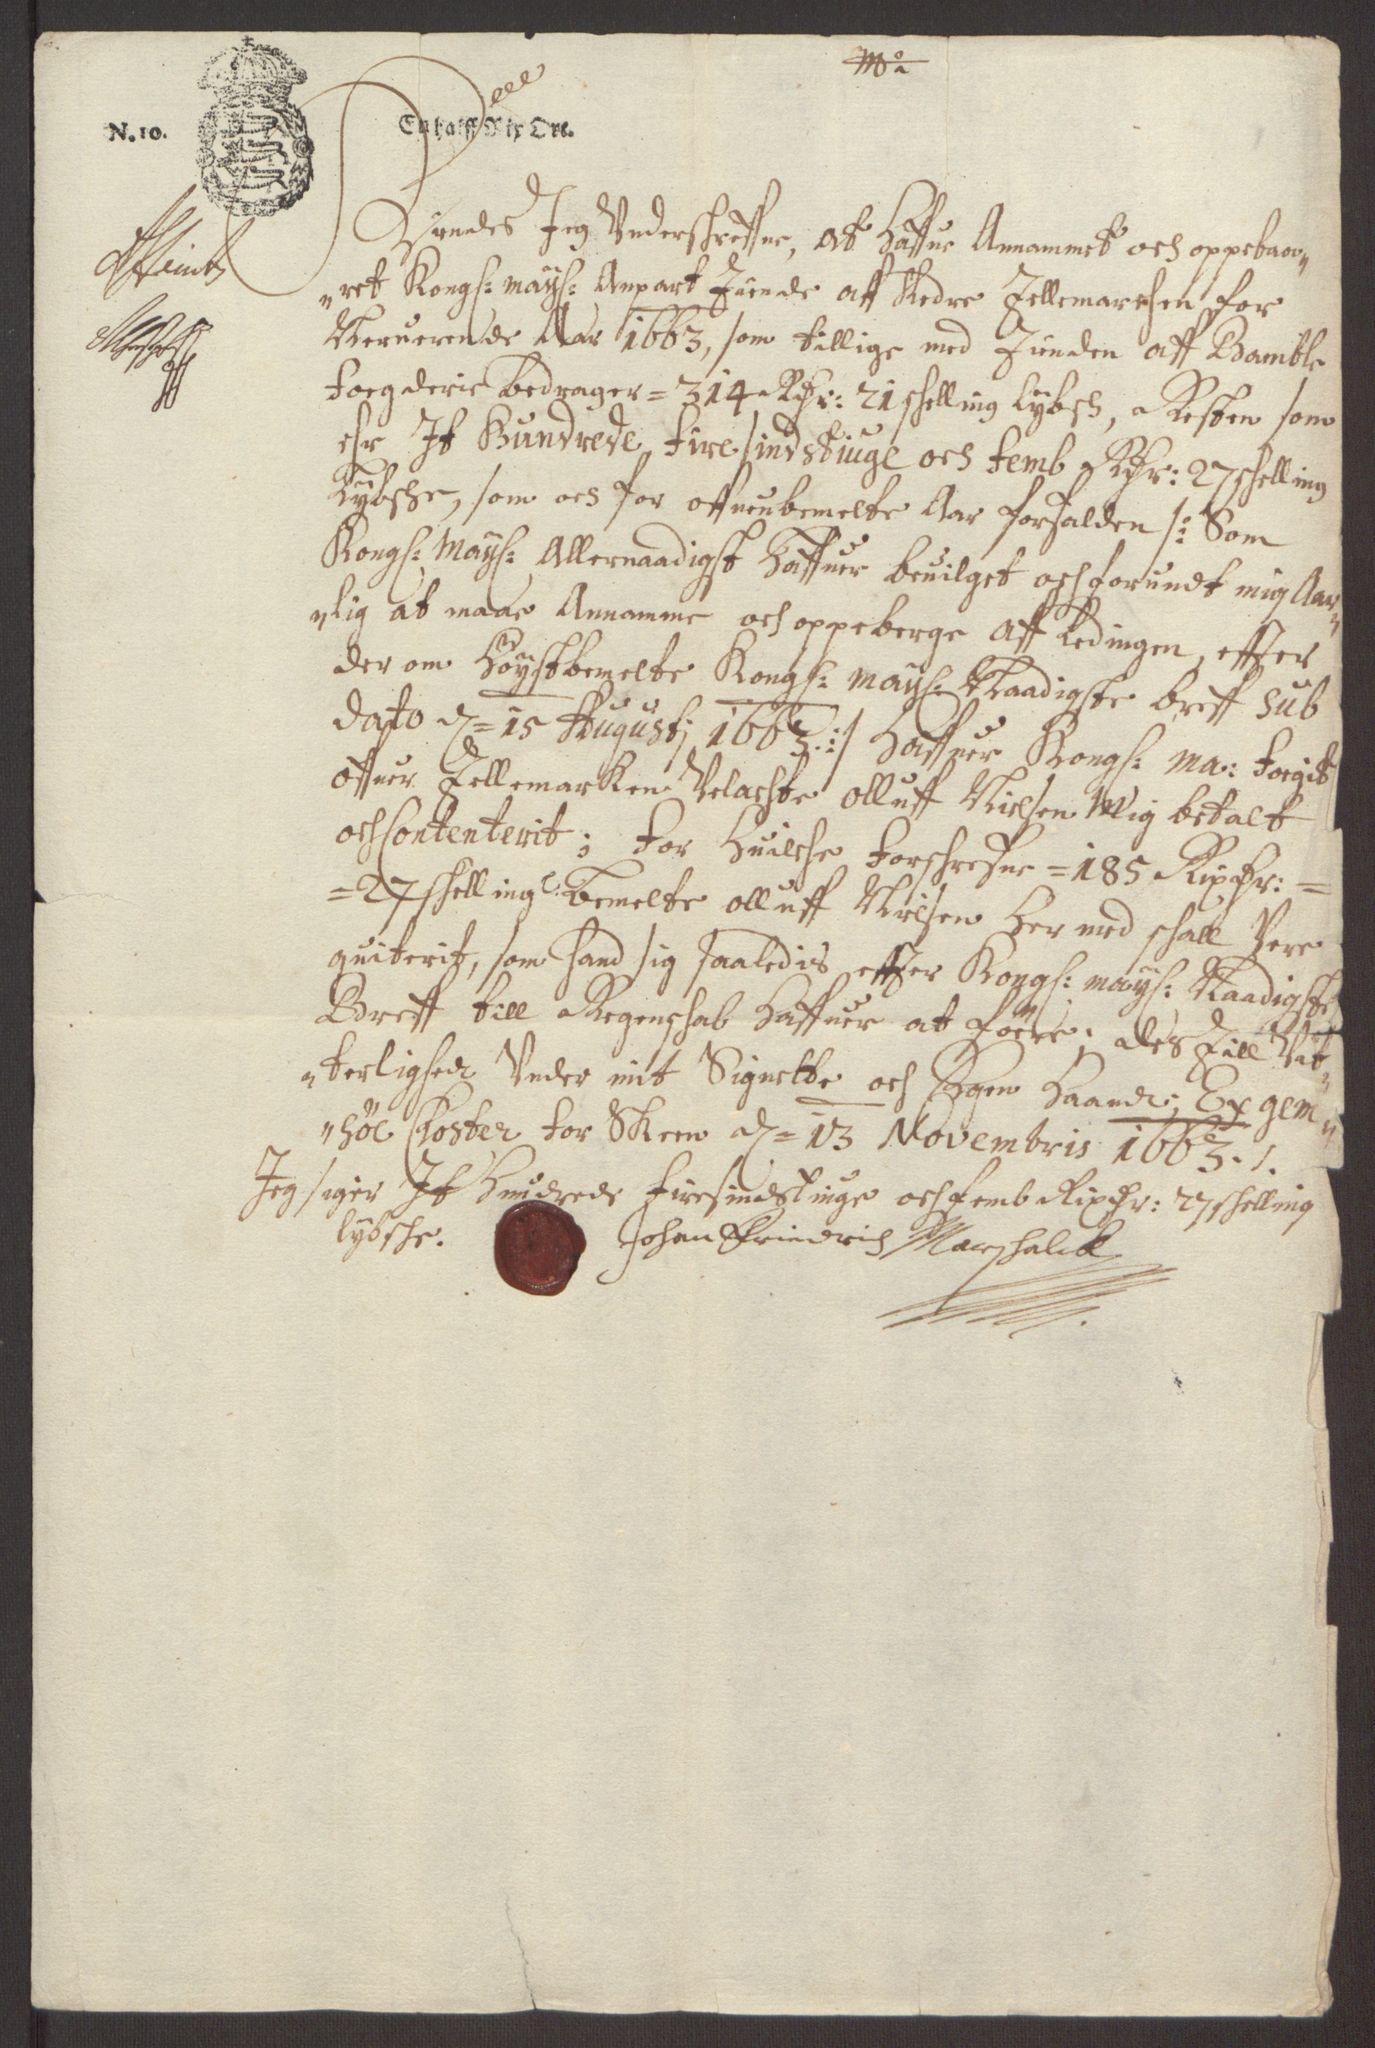 N. 10.
En halff Rix Ort.
Kiendes Jeg Underschreffne, At Haffue Annammet och oppebaar„
„ret Kongs: Mays: Anpart Tiende aff Nedre Tellemarchen for
Neruerende Aar 1663, som tillige med Tienden aff Bamble
foegderie bedrager = 314 Rdr: 21 schelling Lybsch, Resten som
ehr It Hundrede firesindstiuge och femb Rdr: 27 schelling
Lybsche, som och for offuenbemelte Aar forfalden /: Som
Kongs: Mays: Allernaadigst Haffuer beuilget och forundt mig Aar„
„lig at maae Annamme och oppeberge aff Ledingen, effter
der om Höystbemelte Kongs: Mays: Naadigste breff sub
dato d = 15 Augustj 1663 :/ Haffuer Kongs: Ma: foegit
offuer Tellemarken Velachte Olluff Nielsen Mig betalt
och Contenterit; for Huilche forschrefne = 185 Rixdr: =
= 27 schelling l: bemelte Olluff Nielsen Her med schall Vere
quiterit, som hand sig saaledis effter Kongs: Mays: Naadigste
Breff till Regenschab Haffuer at föere; dis till Vit„
„terlighed Under mit Signette och Egen Haand; Ex gem„
„söe Closter for Skeen d = 13 Novembris 1663. /.
Jeg siger It Hundrede firesindstiuge och femb Rixdr: 27 schelling
lybsche.
Johan Friedrich Marschalck